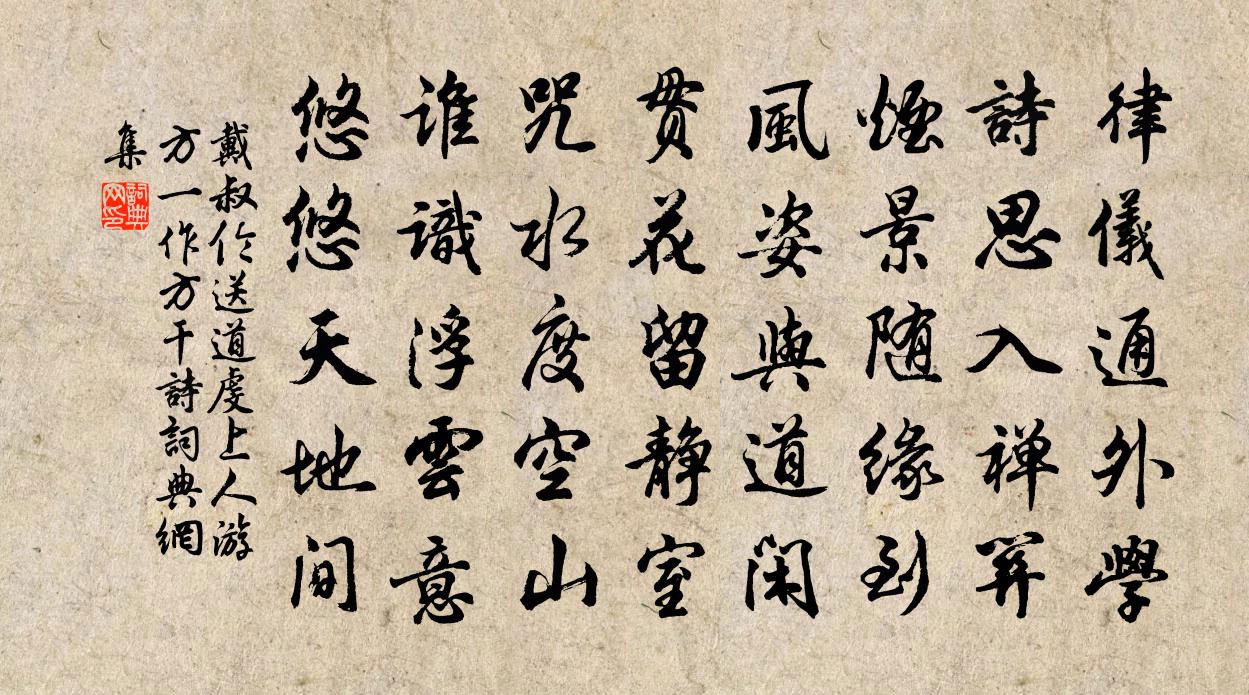 律儀通外學
詩思入禅關
煙景随緣到
風姿與道閑
貫花留静室
咒水度空山
誰識浮雲意
悠悠天地間
戴叔伦送道虔上人游
方一作方干詩詞典網
集
詞典
网印